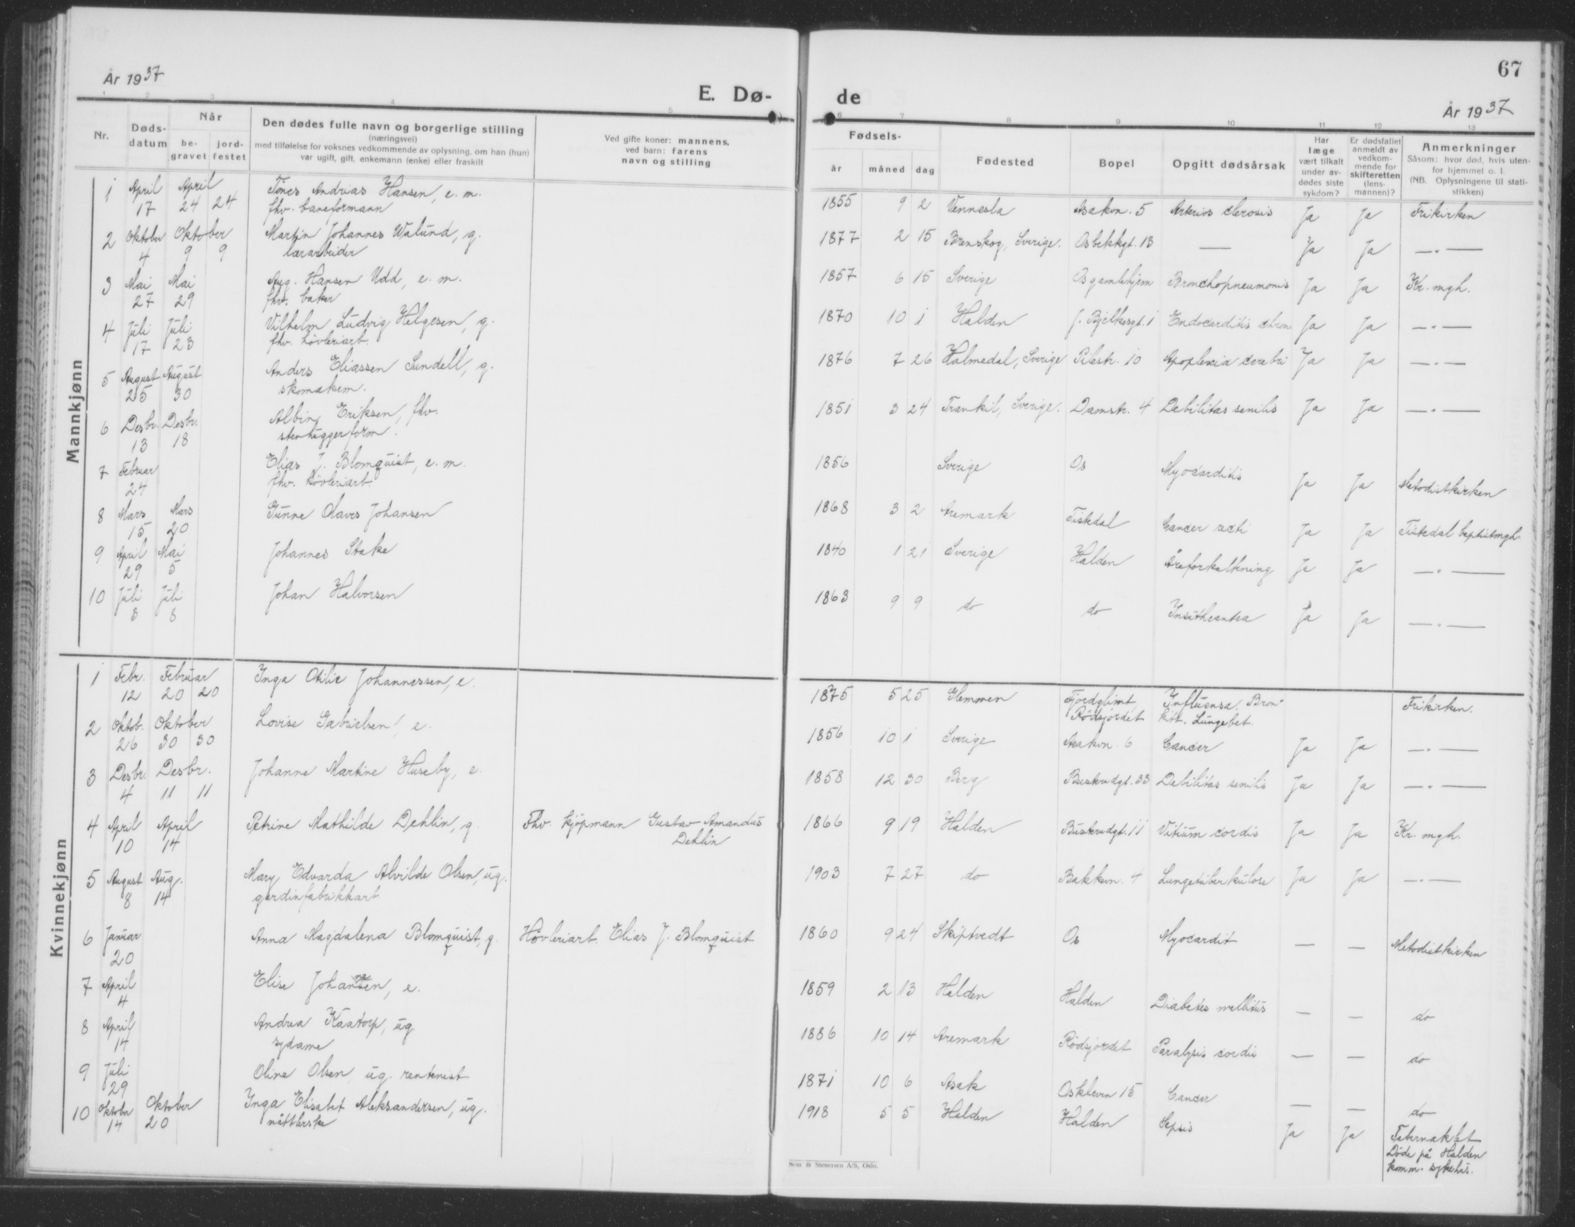 År 1937
E. Dø-
1 2 3 4 5
Nr.
Dødsdatum
Når
begravet
jordfestet
Den dødes fulle navn og borgerlige stilling
(næringsvei)
med tilføielse for voksnes vedkommende av oplysning, om han (hun)
var ugift, gift, enkemann (enke) eller fraskilt
Ved gifte koner: mannens,
ved barn: farens
navn og stilling
Mannkjønn
1 April 17 April 24 24 Tönes Andreas Hansen, e. m.
fhv. baneformann
2 Oktober 4 Oktober 9 9 Martin Johannes Walund, g.
3 Mai 27 Mai 29 Aug. Hansen Udd, e. m.
fhv. baker
4 Juli 17 Juli 23 Vilhelm Ludvig Helgesen, g.
fhv. høvleriarb.
5 August 25 August 30 Anders Eliassen Sundell, g.
skomakerm.
6 Desbr. 13 Desbr. 18 Albin Eriksen, fhv.
stenhuggerform.
7 Februar 24 Elias J. Blomquist, e. m.
fhv. høvleriarb.
8 Mars 15 Mars 20 Gunne Olaves Johansen
9 April 29 Mai 5 Johannes Stake
10 Juli 3 Juli 8 Johan Halvorsen
Kvinnekjønn
1 Febr. 12 Februar 20 20 Inga Otilie Johannessen, e.
2 Oktob. 26 Oktober 30 30 Lovise Gabrielsen, e.
3 Desbr. 4 Desbr. 11 11 Johanne Martine Huseby, e.
4 April 10 April 14 Petrine Mathilde Dehlin, g. Fhv. kjøpmann Gustav Amandus
Dehlin
5 August 8 Aug. 14 Mary Edvarda Alvilde Olsen, ug.
gardinfabrikkarb
6 Januar 20 Anna Magdalena Blomquist, g. Høvleriarb. Elias J. Blomquist
7 April 4 Elise Johansen, e.
8 April 14 Andrea Kaatorp, ug
sydame
9 Juli 29 Oline Olsen, ug. rentenist
10 Oktober 14 Oktober 20 Inga Elisabet Aleksandersen, ug.
67
de
År 1937
6 7 8 9 10 11 12 13
Fødsels-
år
måned
dag
Fødested
Bopel
Opgitt dødsårsak
Har
læge
vært tilkalt
under avdødes siste
sykdom?
Er dødsfallet
anmeldt av
vedkommende for
skifteretten
(lensmannen)?
Anmerkninger
Såsom: hvor død, hvis utenfor hjemmet o. l.
(NB. Oplysningene til statistikken)
1855 9 2 Vennesla Asakvn. 5 Arterios clerosis Ja Ja Frikirken
1877 2 15 Sverige. Osbekkgt. 13 — Ja Ja —.—
1857 6 15 Sverige Os gamlehjem Bronchopneumonis Ja Ja Kr. mgh.
1870 10 1 Halden J. Bjelkesgt. 1 Endocarditis chron Ja Ja —.—
1876 7 26 Holmedal, Sverige Pilestr. 10 Apoplexia cerebri Ja Ja —.—
1851 3 24 Trankil, Sverige. Damstr. 4 Debilitas senilis Ja Ja —.—
1856 Sverige Os Myocarditis Ja Ja Metodistkirken
1868 3 2 Aremark Tistedal Cancer recti Ja Ja Tistedal baptistmgh.
1840 1 21 Sverige Halden Åreforkalkning Ja Ja —.—
1863 9 9 do do Ja Ja —.—
1875 5 25 Glemmen Fjordglimt, Rødsjordet Influensa, Bronkit. Lungebet. Frikirken.
1856 10 1 Sverige Asakvn. 6 Cancer Ja Ja —.—
1858 12 30 Berg Buskrudgt. 33 Debilitas senilis Ja Ja —.—
1866 9 19 Halden Buskrudgt. 11 Vitium cordis Ja Ja Kr. mgh.
1903 7 27 do Bakkevn. 4 Lungetuberkulose Ja Ja —.—
1860 9 24 Skiptvedt Os Myocardit — — Metodistkirken
1859 2 13 Halden Halden Diabetes mellitus — — do
1886 10 14 Aremark Rødsjordet Paralysis cordis — — do
1871 10 6 Asak Osklevn 15 Cancer — — do
1918 5 5 Halden Halden Sepsis Ja Ja Tabernaklet
Døde på Halden
komm. sykehus.
Sem & Stenersen A/S, Oslo.